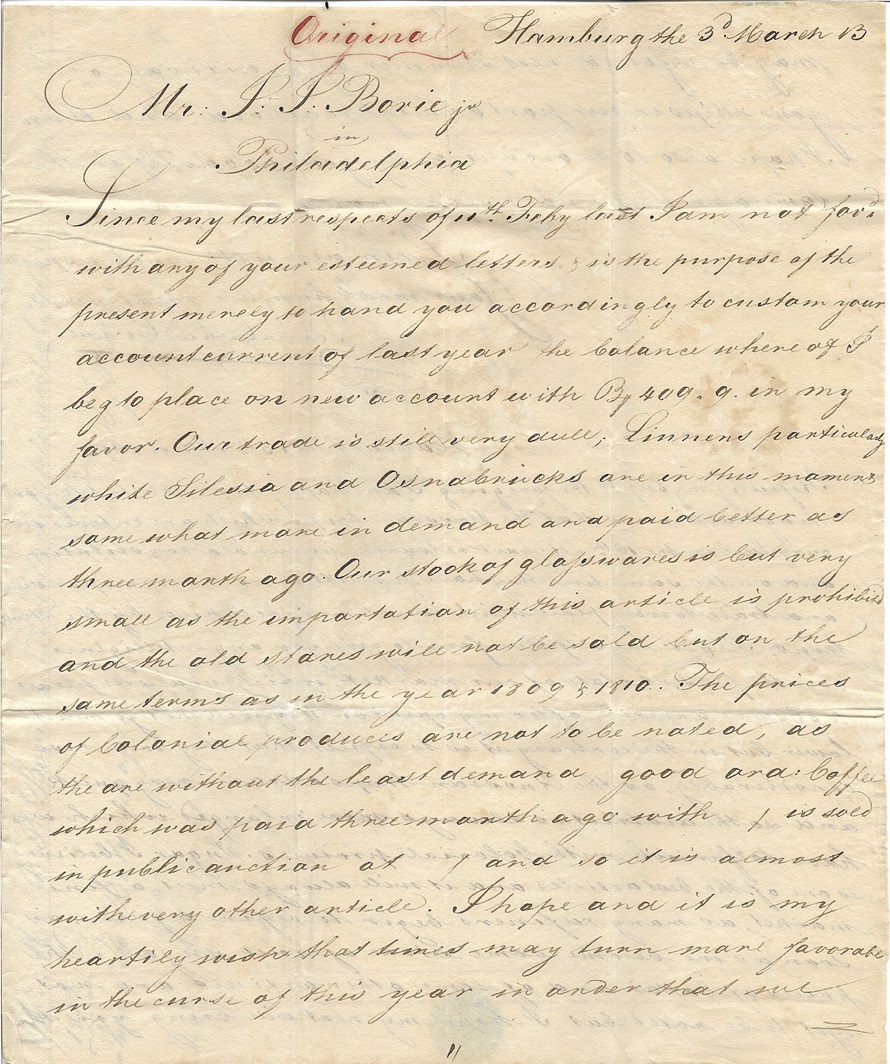 Original Hamburg the 3d March 13
Mr. J. J. Borie jr
in
Philadelphia
Since my last respects of 11th Feby last I am not favd
with any of your esteemed letters & is the purpose of the
present merely to hand you accordingly to custom your
account current of last year the balance where of I
beg to place on new account with 409. 9. in my
favor. Our trade is still very dull; Linnens particularly
white Silesia and Osnabricks are in this moment
some what more in demand and paid better as
three month ago. Our stock of glasswares is but very
small as the importation of this article is prohibited
and the old stores will not be sold but on the
same terms as in the year 1809 & 1810. The prices
of Colonial produces are not to be noted, as
the are without the least demand good ord: Coffee
which was paid three month ago with / is sold
in public auction at / and so it is almost
with every other article. I hope and it is my
heartily wish that times may turn more favorable
in the curse of this year in order that we